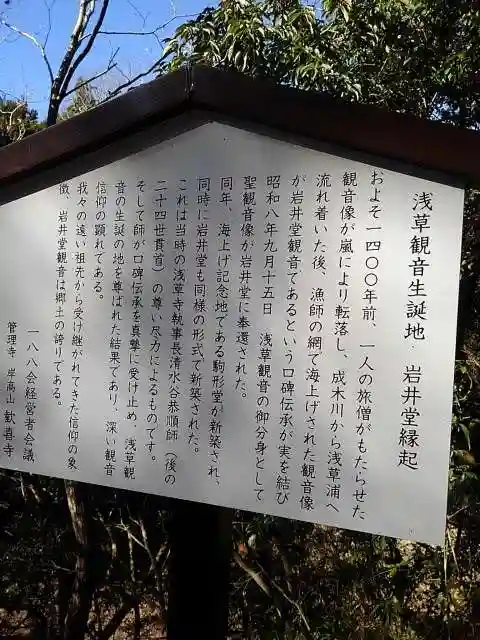 浅草観音生誕地　岩井堂縁起
およそ一四〇〇年前、一人の旅僧がもたらせた
観音像が嵐により転落し、成木川から浅草浦へ
流れ着いた後、漁師の網で海上げされた観音像
が岩井堂観音であるという口碑伝承が実を結び
昭和八年九月十五日　浅草観音の御分身として
聖観音像が岩井堂に奉還された。
同年、海上げ記念地である駒形堂が新築され、
同時に岩井堂も同様の形式で新築された。
これは当時の浅草寺執事長清水谷恭順師（後の
二十四世貫首）の尊い尽力によるものです。
そして師が口碑伝承を真摯に受け止め、浅草観
音の生誕の地を尊ばれた結果であり、深い観音
信仰の顕れである。
我々の遠い祖先から受け継がれてきた信仰の象
徴、岩井堂観音は郷土の誇りである。
一八八会経営者会議
管理寺　岸高山　歓喜寺